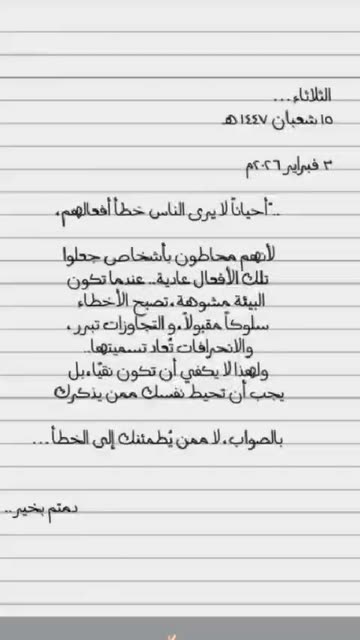 الثلاثاء...
١٥ شعبان ١٤٤٧ هـ
٣ فبراير ٢٠٢٦م
.."أحياناً لا يرى الناس خطأ أفعالهم،
لأنهم محاطون بأشخاص جعلوا
تلك الأفعال عادية.. عندما تكون
البيئة مشوهة، تصبح الأخطاء
سلوكاً مقبولاً، و التجاوزات تبرر ،
والانحرافات تُعاد تسميتها..
ولهذا لا يكفي أن تكون نقيًا، بل
يجب أن تحيط نفسك ممن يذكرك
بالصواب، لا ممن يُطمئنك إلى الخطأ...
دمتم بخير..